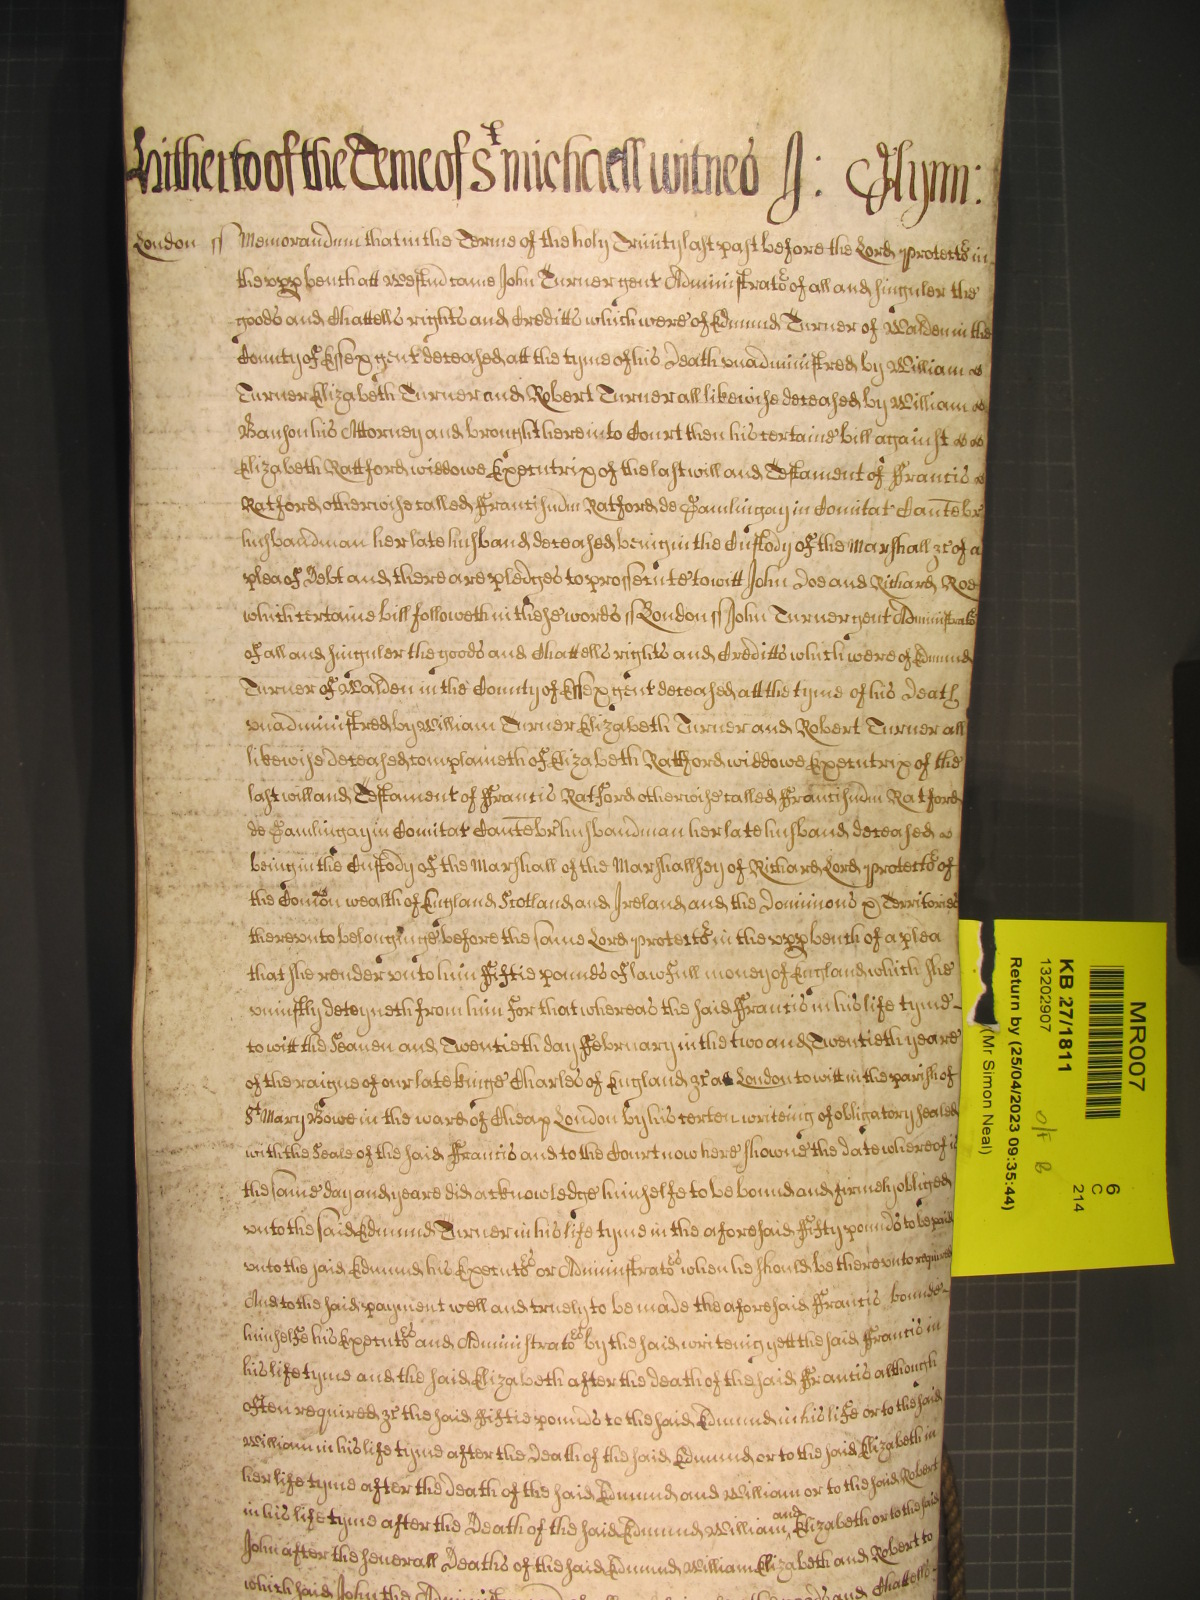 Hitherto of the Terme of St michaell witnes J: Glynn:
London ss Memorandum that in the Terme of the holy Trinity last past before the Lord protector in
the vpp bench att Westmr came John Turner gent Administrator of all and singuler the
goods and Chattells rights and Creditts which were of Edmund Turner of Walden in the
County of Essex gent deceased att the tyme of his Death vnadministred by William
Turner Elizabeth Turner and Robert Turner all likewise deceased by William
Banson his Attorney and brought here into Court then his certaine bill against
Elizabeth Ratford widdowe Executrix of the last will and Testament of ffrancis
Ratford otherwise called ffranciscum Ratford de Gamlingay in Comitat Cantebr
husbandman her late husband deceased being in the Custody of the Marshall &c of a
plea of Debt and there are pledges to prossecute to witt John Doe and Richard Roe
which certaine bill followeth in these words ss London ss John Turner gent Administrator
of all and singuler the goods and Chattells rights and Creditts which were of Edmund
Turner of Walden in the County of Essex gent deceased att the tyme of his Death
vnadministred by William Turner Elizabeth Turner and Robert Turner all
likewise deceased complaineth of Elizabeth Ratford widdowe Executrix of the
last will and Testament of ffrancis Ratford otherwise called ffranciscum Ratford
de Gamlingay in Comitat Cantebr husbandman her late husband deceased
being in the Custody of the Marshall of the Marshallsey of Richard Lord protector of
the Comon wealth of England Scotland and Ireland and the Dominions & Territories
therevnto belonginge before the same Lord protector in the vpp bench of a plea
that she render vnto him ffiftie pounds of lawfull money of England which she
vniustly deteyneth from him for that whereas the said ffrancis in his life tyme
to witt the Seauen and Twentieth day ffebruary in the two and Twentieth yeare
of the raigne of our late kinge Charles of England &c at London to witt in the parish of
St Mary Bowe in the ward of Cheap London by his certen writeing obligatory sealed
with the Seale of the said ffrancis and to the Court now here showne the date whereof is
the same day and yeare did acknowledge himselfe to be bound and firmely obliged
vnto the said Edmund Turner in his life tyme in the aforesaid ffifty pounds to be paid
vnto the said Edmund his Executors or Administrators when he should be therevnto required
And to the said payment well and truely to be made the aforesaid ffrancis bounde
himselfe his Executors and Administrators by the said writeing yett the said ffrancis in
his life tyme and the said Elizabeth after the death of the said ffrancis although
often required &c the said ffiftie pounds to the said Edmund in his life or to the said
William in his life tyme after the Death of the said Edmund or to the said Elizabeth in
her life tyme after the death of the said Edmund and William or to the said Robert
in his life tyme after the Death of the said Edmund William and Elizabeth or to the said
John after the seuerall Deaths of the said Edmund William Elizabeth and Robert to
which said John the goods and Chattells
MR007
6
C
214
KB 27/1811
13202907
Return by (25/04/2023 09:35:44)
(Mr Simon Neal)